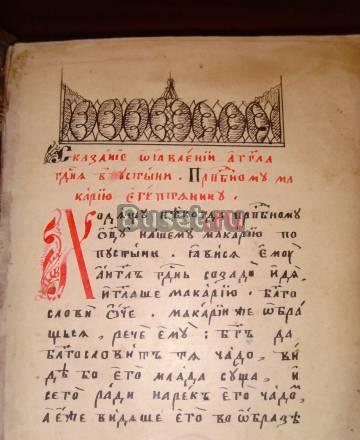 Сказание ѿ ꙗвлении агг҃ла
гд҇нѧ в пꙋстыни. Прпⷣбномꙋ ма
карїю єгѵптѧнинꙋ.
Ходѧщꙋ нѣкогда прпⷣбномꙋ
оц҃ꙋ нашемꙋ макарїю по
пꙋстыни. ꙗвисѧ ємꙋ
аг҃глъ гд҇нь созади идѧ,
и гл҃аше макарїю. Благо
слови ѻ҃че. макарїи же ѡбра
щьсѧ, рече ємꙋ; Бг҃ъ да
благословитъ тѧ чадо, ви
дѣ бо єго млада сꙋща, и
сего ради нарек єго чадо,
а єже видѧше єго во ѡбразѣ
Buset.ru